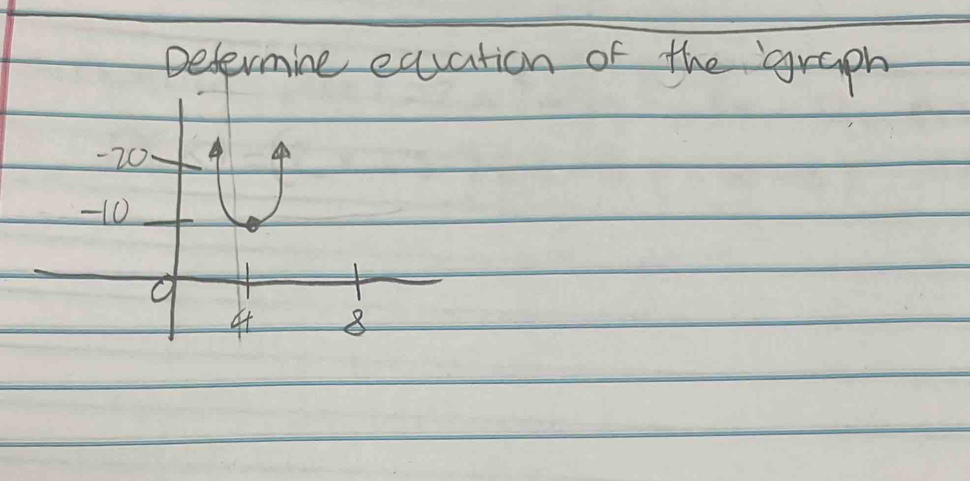 Determine equation of the graph
-20
-10
0
4
8